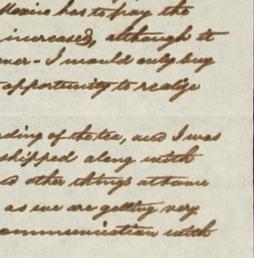 Mexico has to pay the
increased, although it
I would only buy
opportunity to realize
of the tea, and I was
shipped along with
other things at home
as we are getting very
communication with